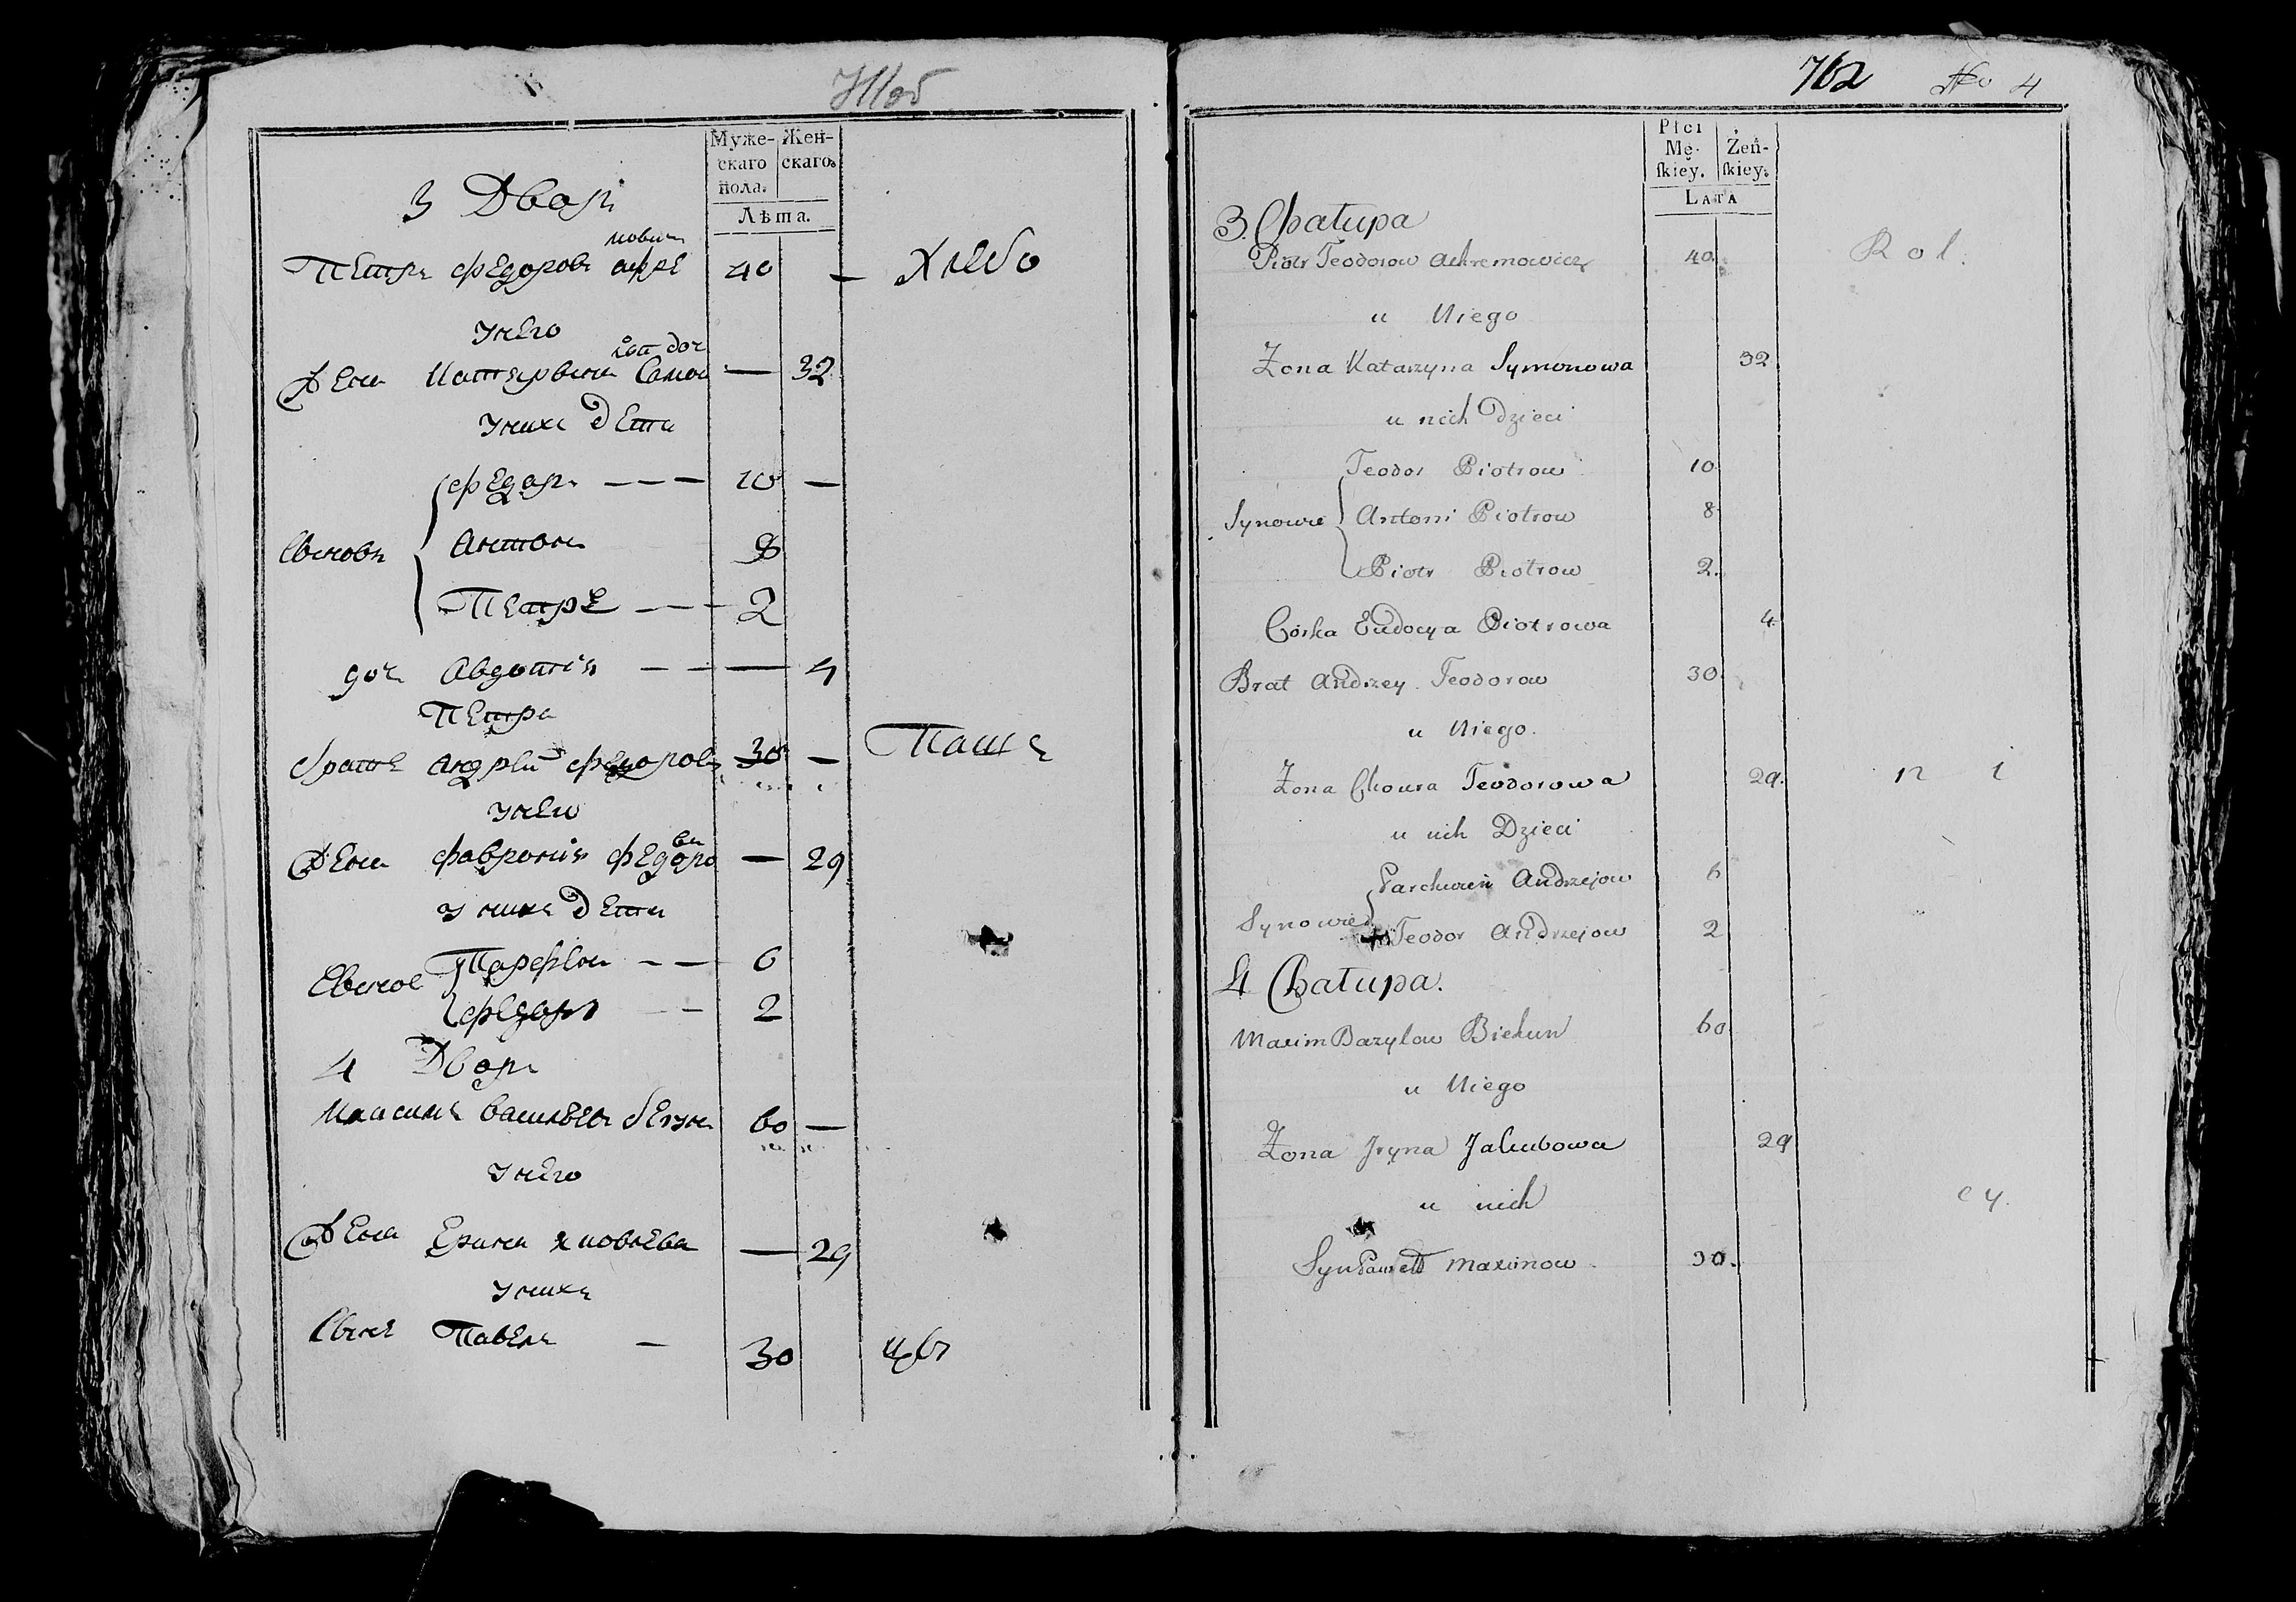 Муже-
скаго
пола.
Жен-
скаго.
Лѣта.
3 Дворъ
мовичъ
Петръ Федоровъ Ахре 40 — Хлебо
У него
Жена Катерына 32
У нихъ дети
Федоръ — — — 10 —
Сыновъ Антонъ 8
Петръ — — — 2
доч Авдотїя — — — 4
Петра
братъ Андрей Федоровъ 30 — Паше
У него
ва
Жена Февронїя Федоро — 29
У нихъ дети
Парфенъ — — 6
Федоръ — — 2
4 Дворъ
Максимъ Васильевъ Бекунъ 60 —
У него
Жена Ерина Яковлева — 29
У нихъ
Сынъ Павелъ — 30 цы
762 No 4
Płci
Mę-
skiey.
Żeń-
skiey.
LATA
3. Chałupa
Piotr Teodorow Achremowicz 40. Rol.
u Niego
Zona Katarzyna Symonowa 32
u nich Dzieci
Teodor Piotrow 10
Synowie Antoni Piotrow 8
Piotr Piotrow 2.
Córka Eudocya Piotrowa 4
Brat Andrzey Teodorow 30
u Niego.
Zona Teodorowa 29. n i
u nich Dzieci
Andrzejow 6
Synowie Teodor Andrzejow 2
4 Chałupa.
Maxim Bazylow Biekun 60
u Niego
Zona Jryna Jakubowa 29
u nich
cy.
Syn Paweł Maximow 30.